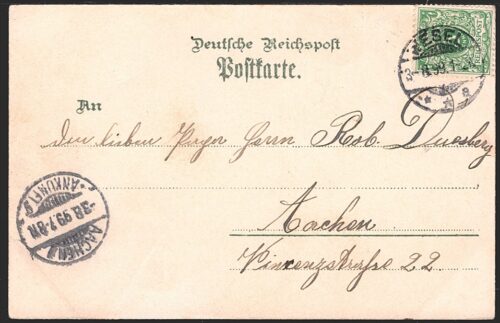 Deutsche Reichspost
Postkarte.
WESEL
3 8 99 1-2
a
An
den lieben Herrn Rob. Duesberg
Aachen
Vincenzstraße 22.
AACHEN
-3.8.99.7-8N
ANKUNFT